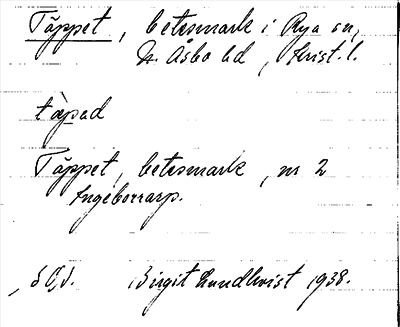 Täppet, betesmark i Rya sn,
N. Åsbo hd, Krist. l.
tàpad
Täppet, betesmark, nr 2
Ingeborrarp.
Birgit Lundkvist 1938.